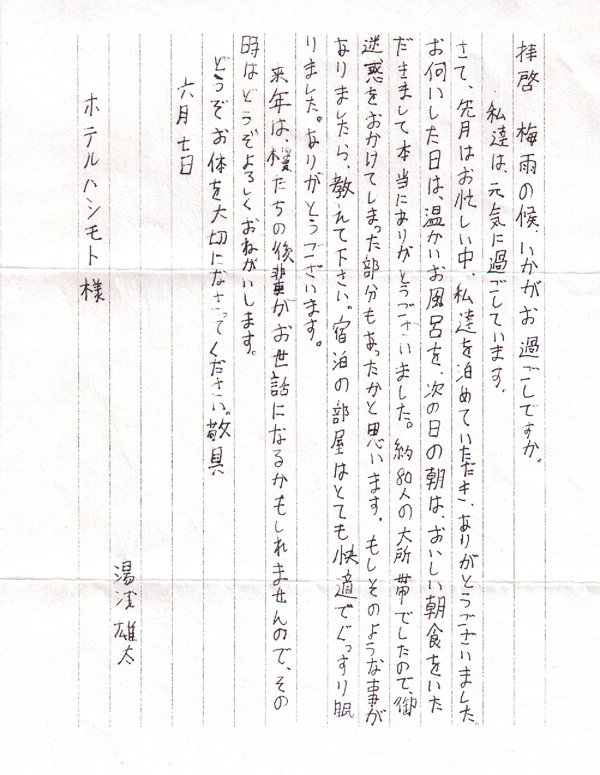 拝啓 梅雨の候、いかがお過ごしですか。
私達は、元気に過ごしています。
さて、先月はお忙しい中、私達を泊めていただき、ありがとうございました
お伺いした日は、温かいお風呂を、次の日の朝は、おいしい朝食をいた
だきまして本当にありがとうございました。約80人の大所帯でしたので、御
迷惑をおかけてしまった部分もあったかと思います。もしそのような事が
ありましたら、教えて下さい。宿泊の部屋はとても快適でぐっすり眠
りました。ありがとうございます。
来年は、僕たちの後輩がお世話になるかもしれませんので、その
時はどうぞよろしくおねがいします。
どうぞお体を大切になさってください。敬具
六月七日
湯浅雄太
ホテルハシモト様